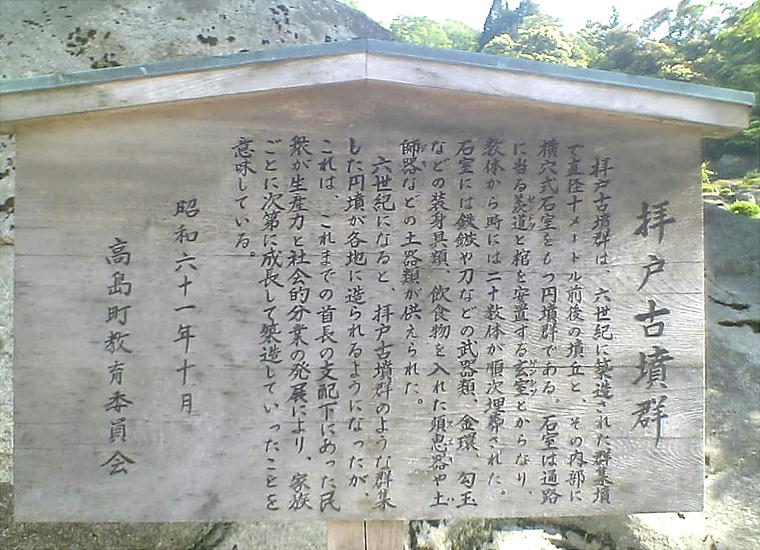 拝戸古墳群
拝戸古墳群は、六世紀に築造された群集墳
で直径十メートル前後の墳丘と、その内部に
横穴式石室をもつ円墳群である。石室は通路
に当る羨道と棺を安置する玄室とからなり、
数体から時には二十数体が順次埋葬された。
石室には鉄鏃や刀などの武器類、金環、勾玉
などの装身具類、飲食物を入れた須恵器や土
師器などの土器類が供えられた。
六世紀になると、拝戸古墳群のような群集
した円墳が各地に造られるようになったが、
これは、これまでの首長の支配下にあった民
衆が生産力と社会的分業の発展により、家族
ごとに次第に成長して築造していったことを
意味している。
昭和六十一年十月
高島町教育委員会